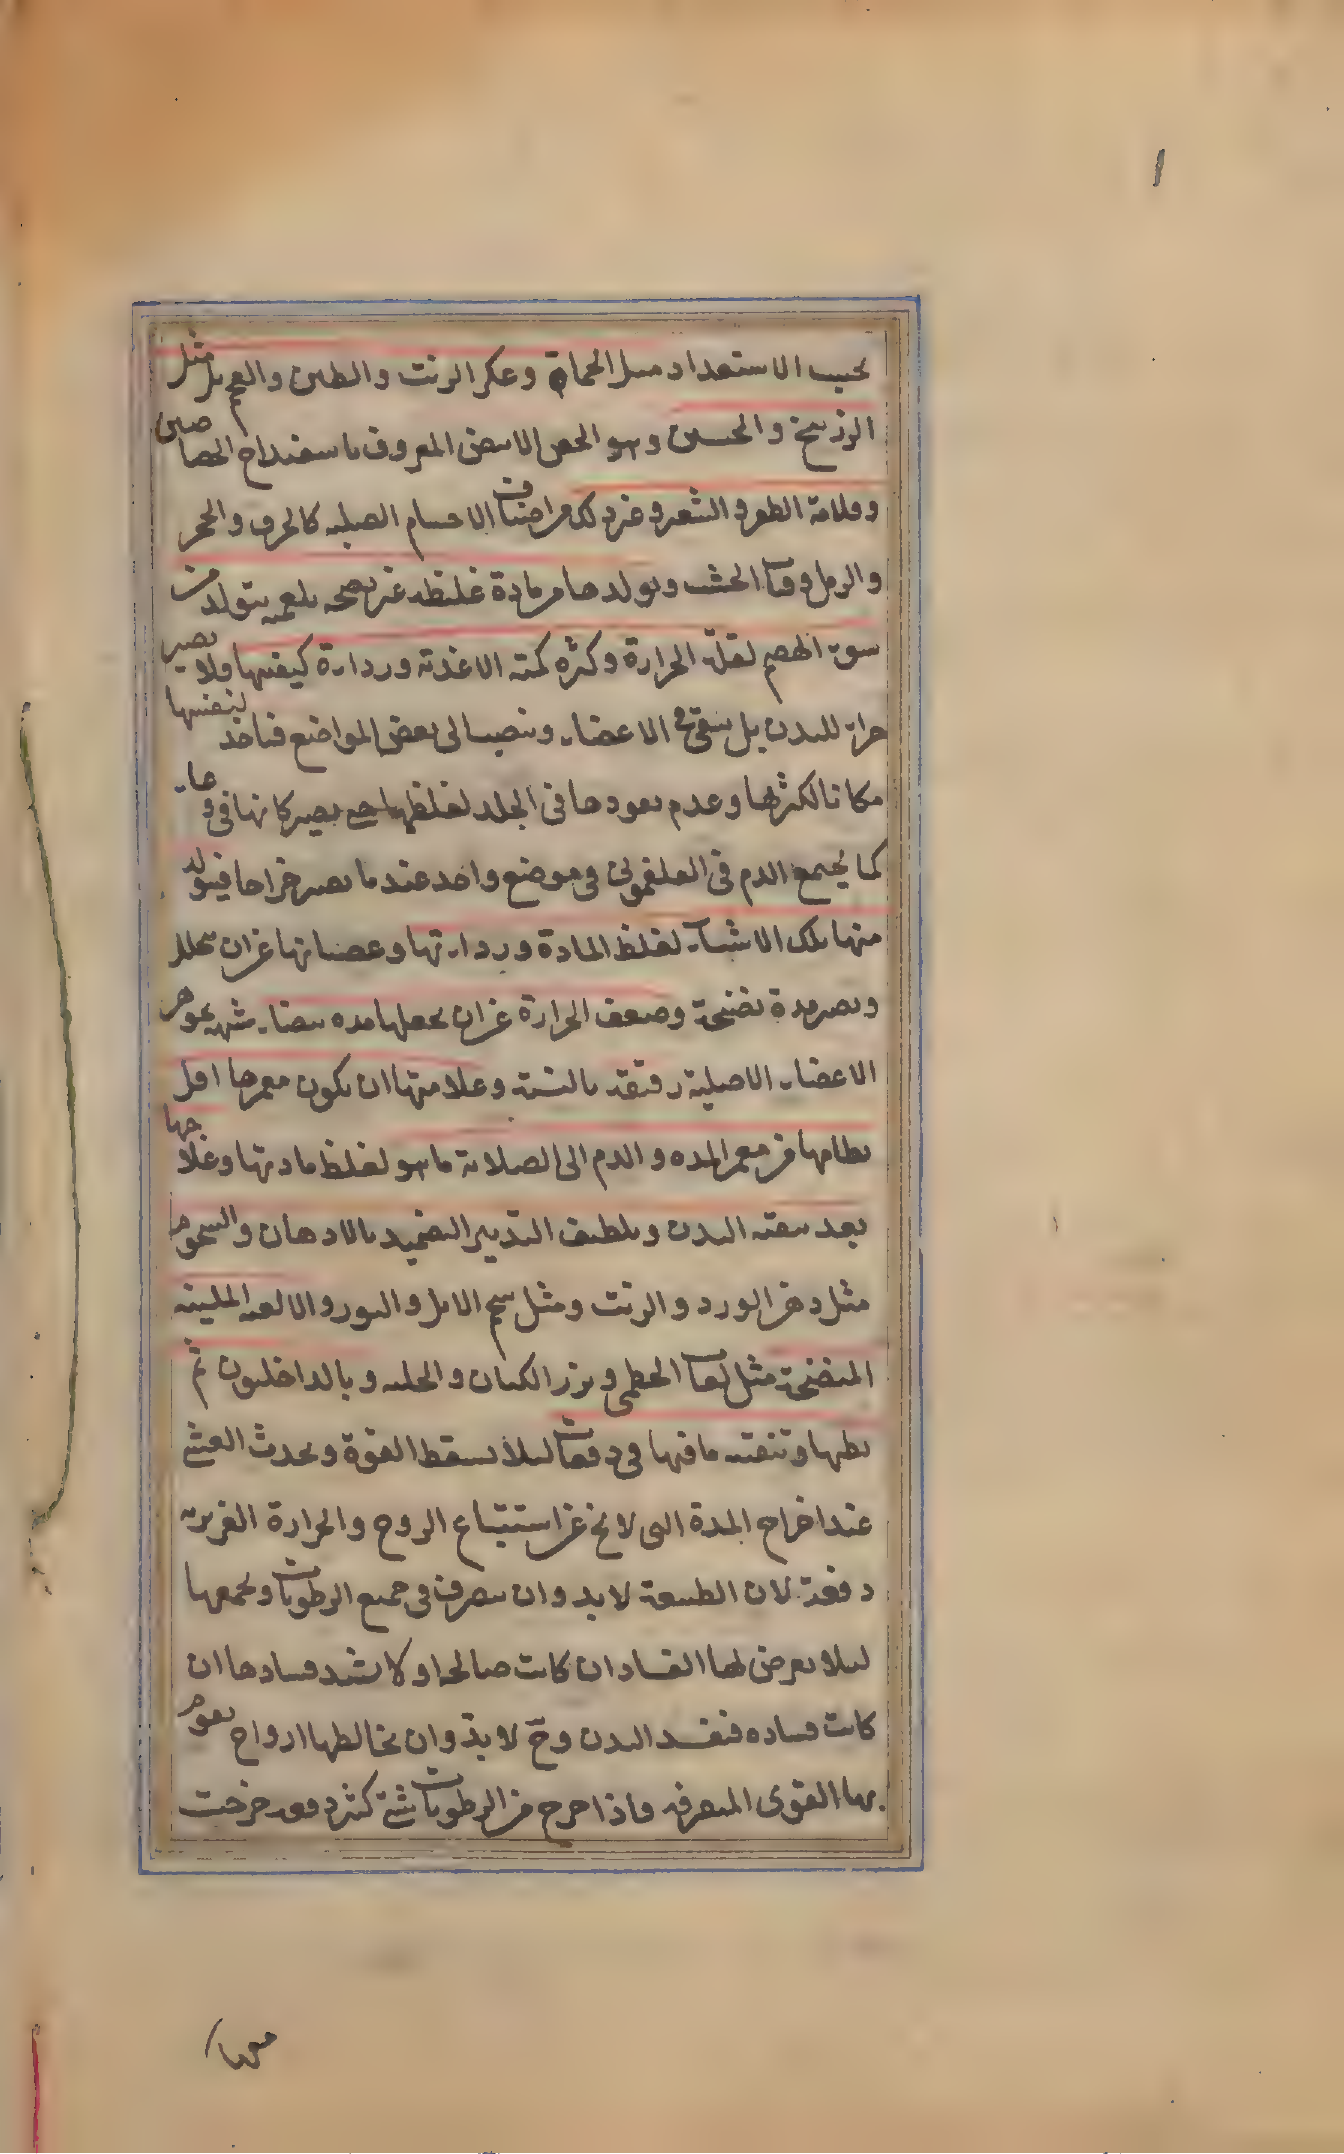 بحسب الاستعداد مثل الحمأة وعكر الزيت والطين والفحم بل مثل
الزرنيخ والجسين وهو الجص الابيض المعروف باسفنداج الجصاصين
وقلامة الظفر والشعر وغير ذلك من اصناف الاجسام الصلبه كالخزف والحجر
والرمل وفتات الخشب وتولدها من مادة غليظه غير نضجه بلغميه يتولد من
سوء الهضم لقلة الحرارة وكثرة كمية الاغذية ورداءة كيفيتها ولا يصير
جزا للبدن بل يبقى في الاعضاء وينصب الى بعض المواضع فتاخذ لنفسها
مكانا لكثرتها وعدم نفوذها في الجلد لغلظها حتى يصير كانها في وعاء
كما يجتمع الدم في الفلغموني في موضع واحد عند ما يصير خراجا فيتولد
منها تلك الاشياء لغلظ المادة ورداءتها وعصيانها عن ان يتحلل
ويصير مدة نضيجة وضعف الحرارة عن ان يجعلها مده بيضاء شبيه بجوهر
الاعضاء الاصلية رقيقة بالنسبة وعلامتها ان يكون مغمزها اقل
تطامنا من مغمز المده والدم الى الصلابة ما هو لغلظ مادتها وعلاجها
بعد تنقية البدن وتلطيف التدبير التضميد بالادهان والشحوم
مثل دهن الورد والزيت ومثل شحم الابل والبقر والالعبه الملينه
المنضجة مثل لعاب الخطمي وبزر الكتان والحلبه وبالداخليون ثم
بطها وتنقية ما فيها في دفعات لئلا يسقط القوة ويحدث الغشي
عند اخراج المدة التي لا يخ عن استتباع الروح والحرارة الغريزية
دفعة لان الطبيعة لا بد وان يتصرف في جميع الرطوبات ويجمعها
لئلا يعرض لها الفساد ان كانت صالحه او لا يشد فسادها ان
كانت فساده فيفسد البدن وح لا بد وان يخالطها ارواح يقوم
بها القوى المتصرفه فاذا خرج من الرطوبات شئ كثير دفعه خرجت